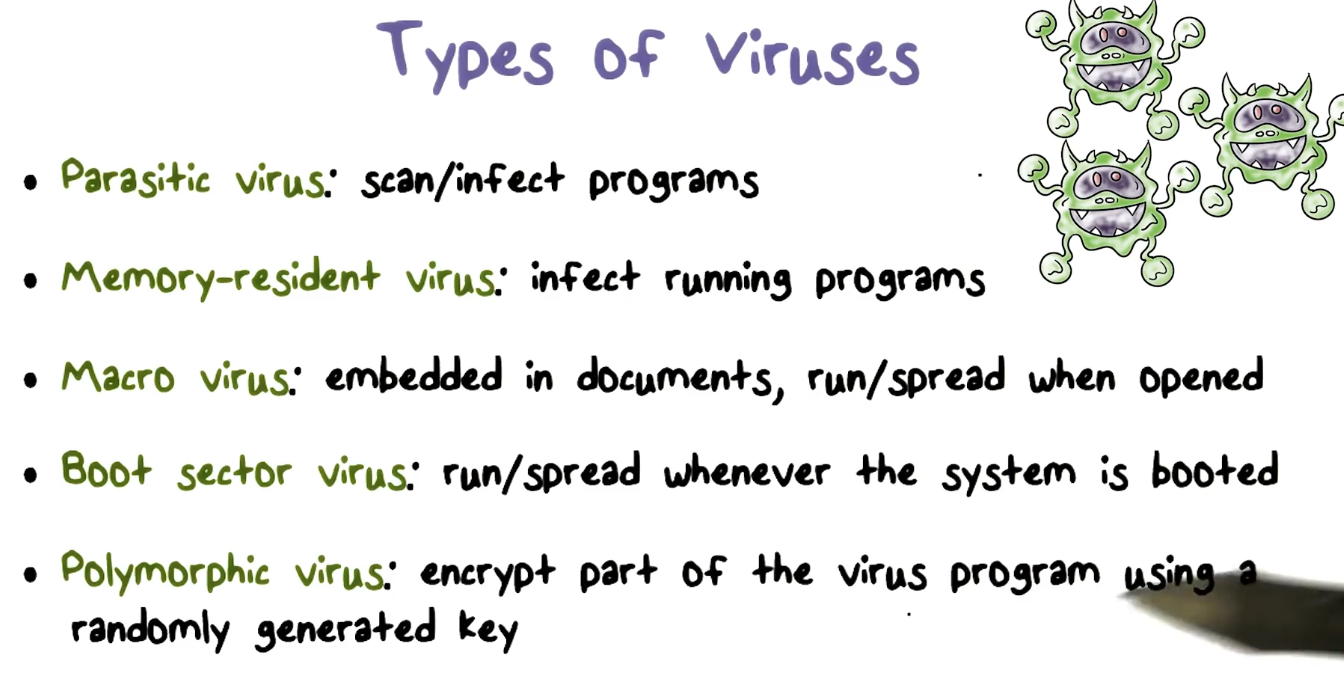 Types of Viruses
• Parasitic virus: scan/infect programs
• Memory-resident virus: infect running programs
• Macro virus: embedded in documents, run/spread when opened
• Boot sector virus: run/spread whenever the system is booted
• Polymorphic virus: encrypt part of the virus program using a
randomly generated key